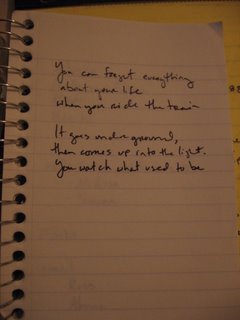 You can forget everything
about your life
when you ride the train
It goes underground,
then comes up into the light.
You watch what used to be